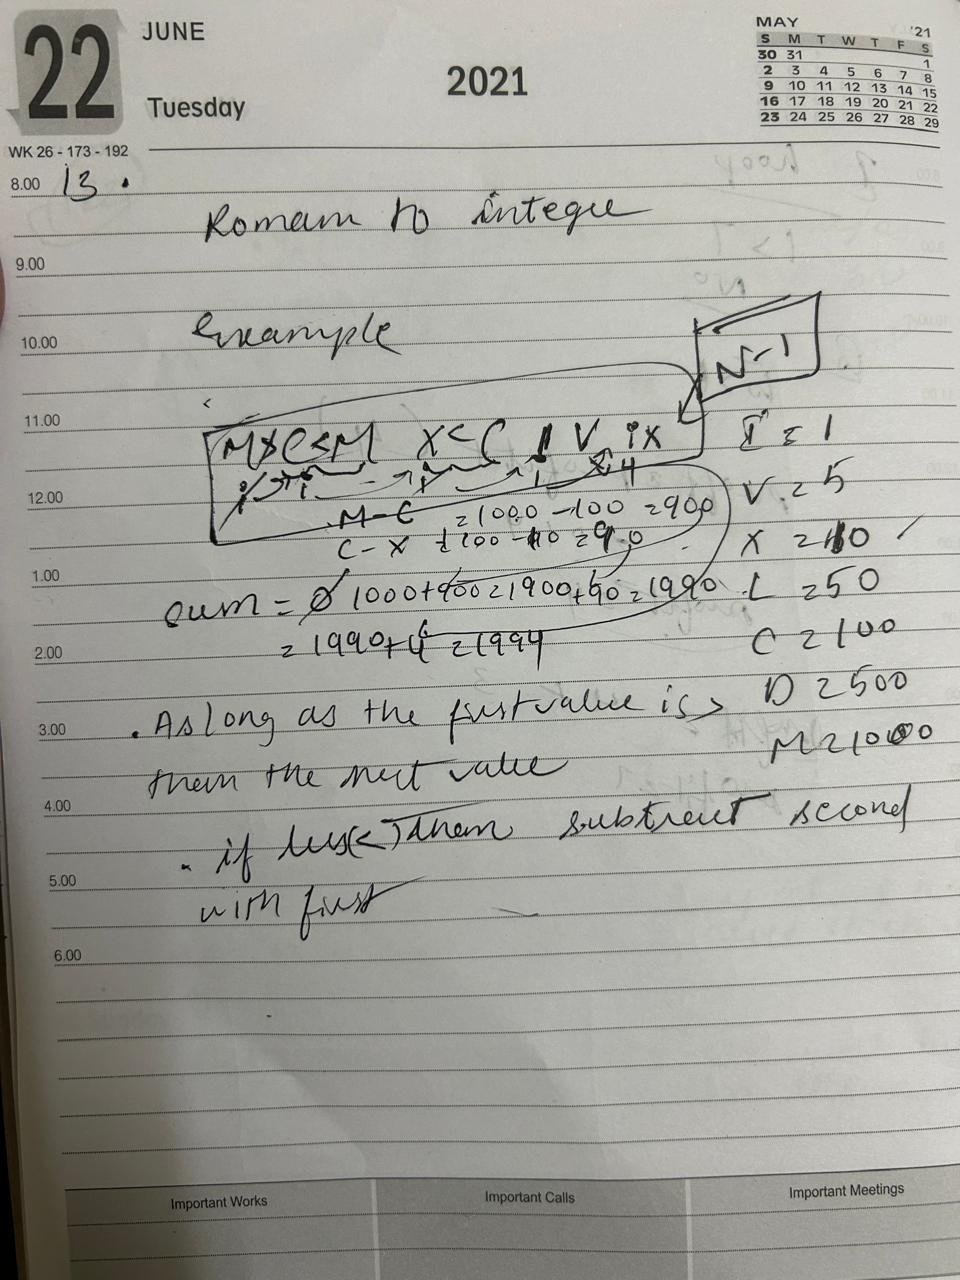 22
JUNE
Tuesday
2021
MAY '21
S M T W T F S
30 31 1
2 3 4 5 6 7 8
9 10 11 12 13 14 15
16 17 18 19 20 21 22
23 24 25 26 27 28 29
WK 26 - 173 - 192
8.00 13.
Roman to integer
9.00
10.00 example
N-1
11.00 M>C<M X<C I V ix I = 1
12.00 4 V = 5
M-C = 1000 - 100 = 900
C-X 100 - 10 = 90 X = 10
1.00 sum = 0 1000+900=1900+90=1990 L = 50
2.00 = 1990+4 = 1994 C = 100
3.00 . As long as the first value is > D = 500
them the next value M = 1000
4.00
. if less(<) them subtract second
5.00 with first
6.00
Important Works Important Calls Important Meetings